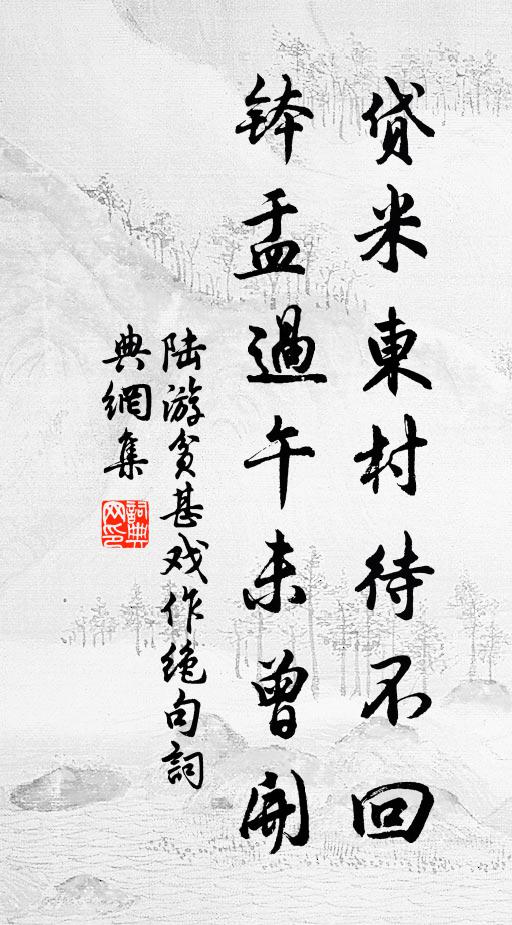 貸米東村待不回
鉢盂過午未曾開
陆游貧甚戏作绝句詞
典網集
詞典
网印